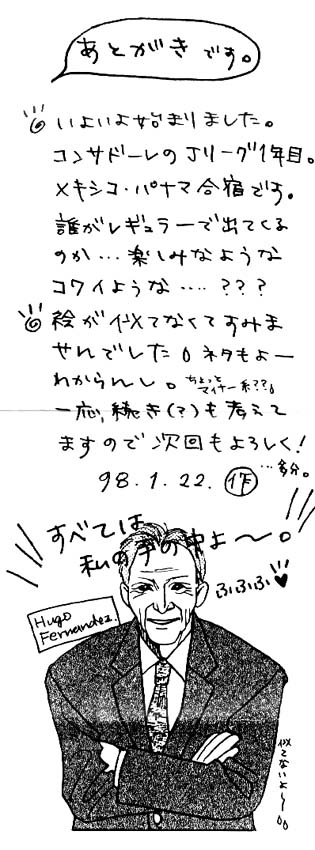 あとがきです。
いよいよ始まりました。
コンサドーレのJリーグ1年目。
メキシコ・パナマ合宿です。
誰がレギュラーで出てくる
のか…楽しみなような
コワイような…. ???
絵が似てなくてすみま
せんでした。ネタもよー
わからんし。ちょっとマイナー系??。
一応、続き(?)も考えて
ますので次回もよろしく!
…多分。
98.1.22. 作
すべては
私の手の中よ〜。
ふふふ♥
Hugo
Fernandez.
似てないよ〜。